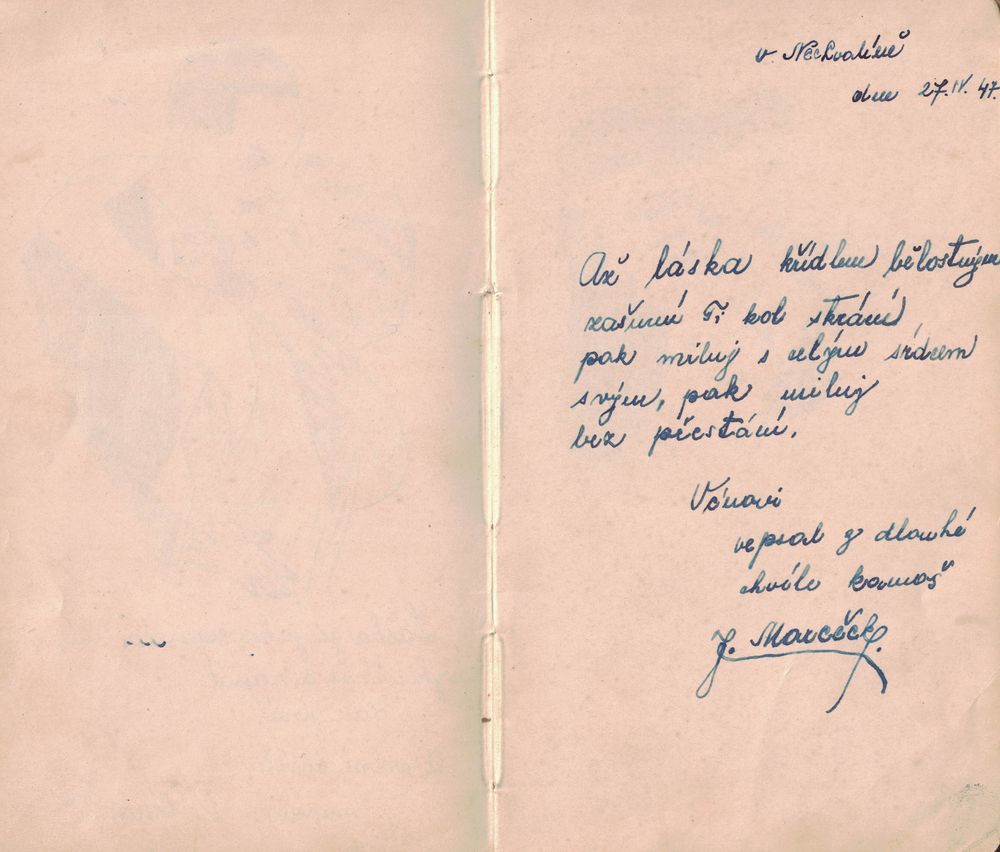 v Nechvalíně
dne 27.IV.47.
Až láska křídlem bělostným
zašumí Ti kol skrání,
pak miluj s celým srdcem
svým, pak miluj
bez přestání.
Vénovi
vepsal z dlouhé
chvíle kamoš
J. Marcěck.